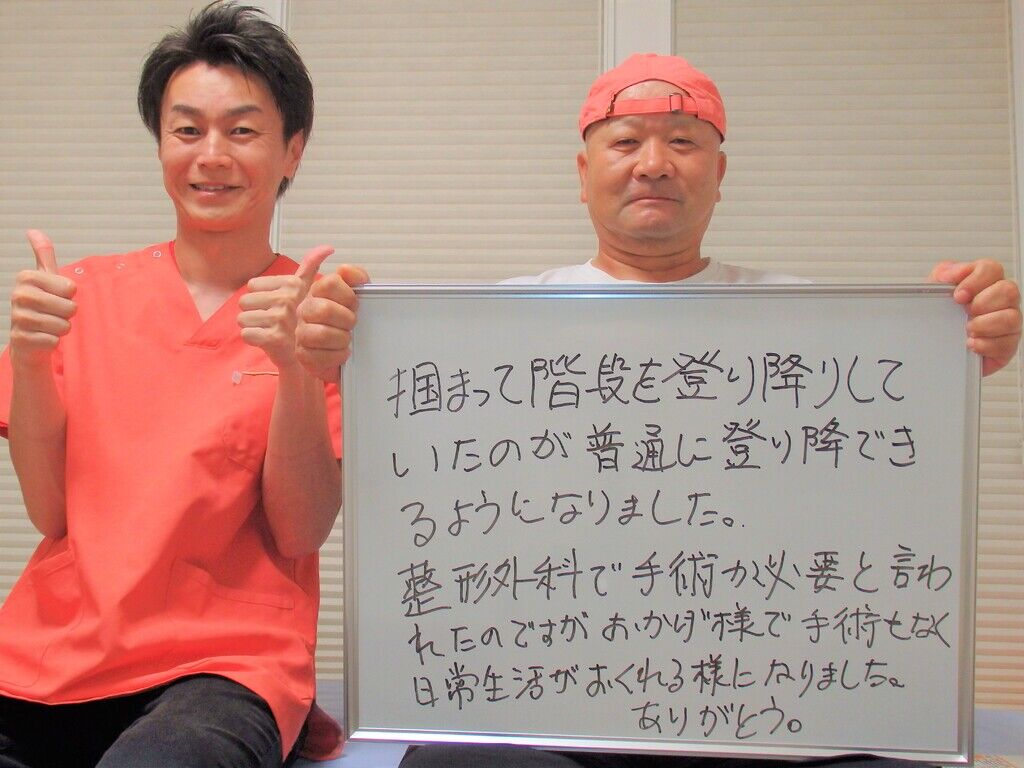 掴まって階段を登り降りして
いたのが普通に登り降でき
るようになりました。
整形外科で手術が必要と言わ
れたのですがおかげ様で手術もなく
日常生活がおくれる様になりました。
ありがとう。